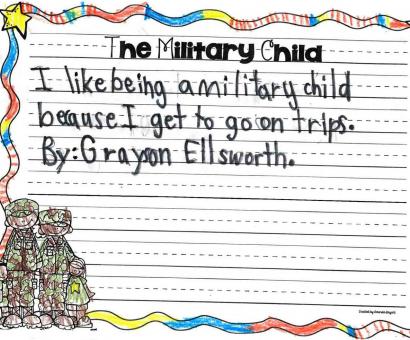 The Military Child
I like being a military child
because I get to go on trips.
By: Grayson Ellsworth.